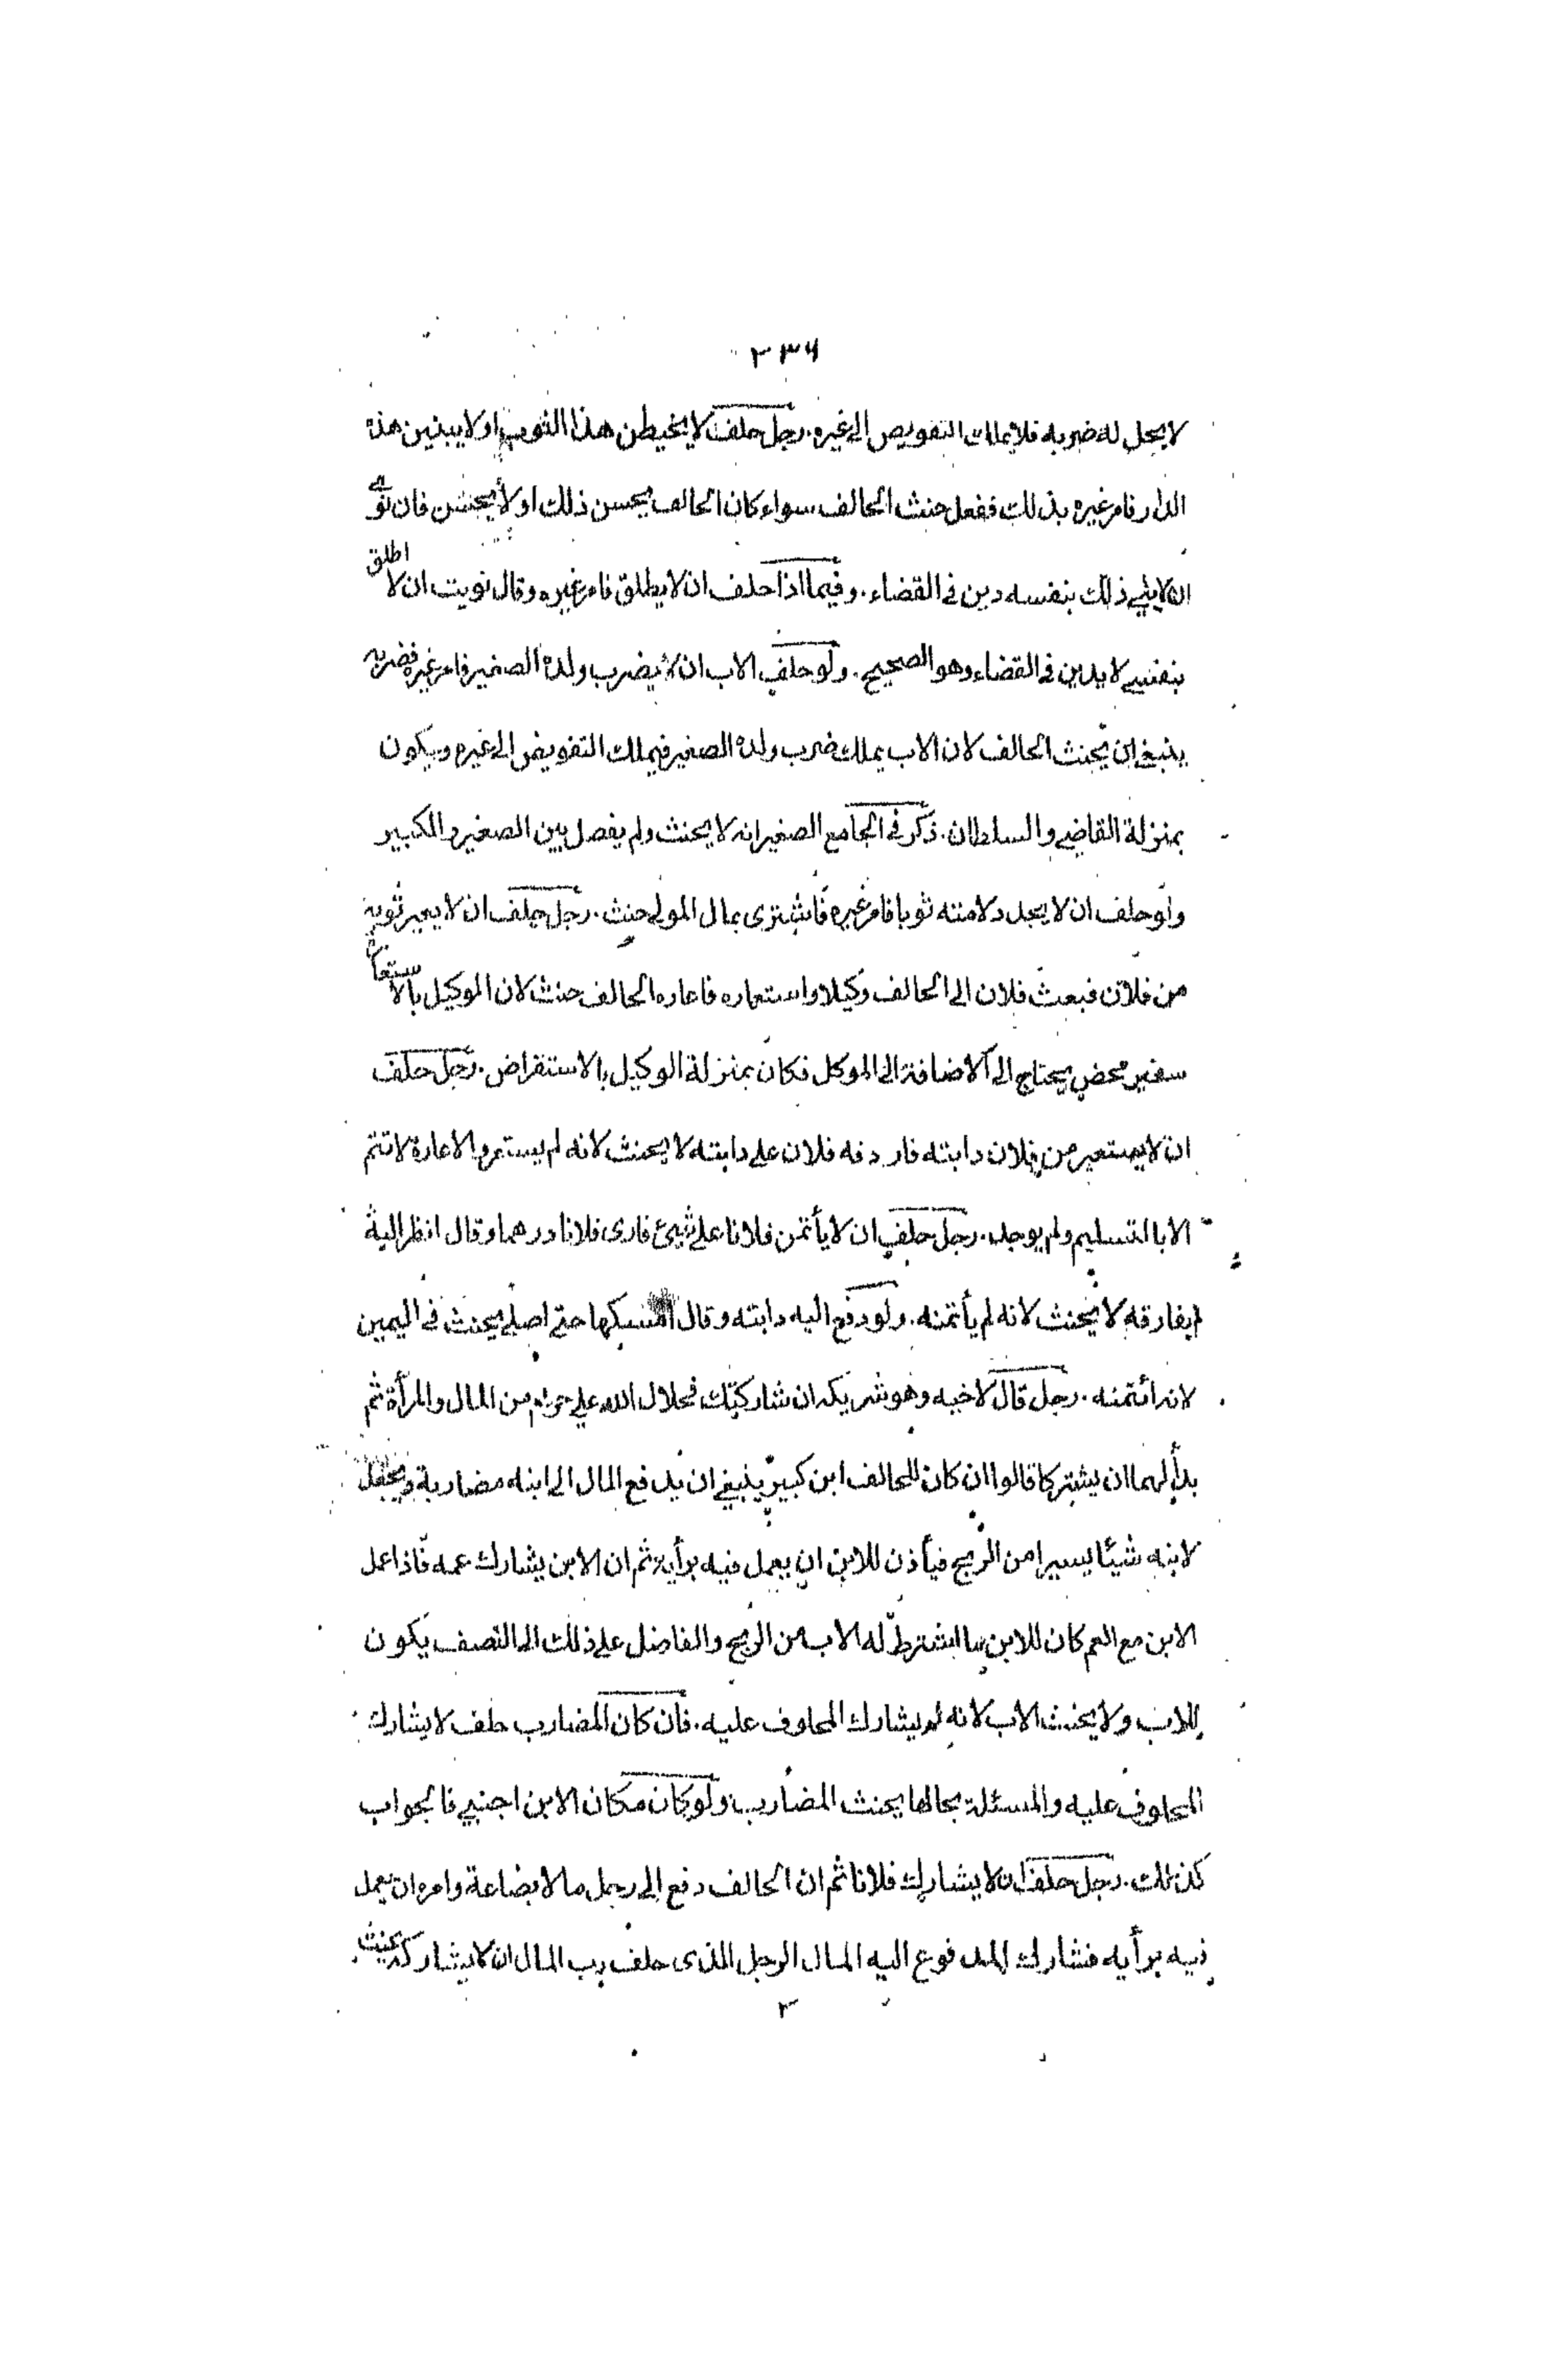 ٢٣٦
لا يحل له ضربه فلا يملك التفويض الى غيره. رجل حلف لا يخيطن هذا الثوب او لا يبنين هذه
الدار فامر غيره بذلك ففعل حنث الحالف سواء كان الحالف يحسن ذلك او لا يحسن فان نوى
ان لا يلي ذلك بنفسه دين في القضاء. وفيما اذا حلف ان لا يطلق فامر غيره وقال نويت ان لا اطلق
بنفسي لا يدين في القضاء وهو الصحيح. ولو حلف الاب ان لا يضرب ولده الصغير فامر غيره فضربه
ينبغي ان يحنث الحالف لان الاب يملك ضرب ولده الصغير فيملك التفويض الى غيره ويكون
بمنزلة القاضي والسلطان. ذكر في الجامع الصغير انه لا يحنث ولم يفصل بين الصغير والكبير
ولو حلف ان لا يجدد لامته ثوبا فامر غيره فاشترى بمال المولى حنث. رجل حلف ان لا يعير ثوبه
من فلان فبعث فلان الى الحالف وكيلا واستعاره فاعاره الحالف حنث لان الوكيل بالاستعارة
سفير محض يحتاج الى الاضافة الى الموكل فكان بمنزلة الوكيل بالاستقراض. رجل حلف
ان لا يستعير من فلان دابته فاردفه فلان على دابته لا يحنث لانه لم يستعر والاعارة لا تتم
الا بالتسليم ولم يوجد. رجل حلف ان لا يأتمن فلانا على شيئ فارى فلانا درهما وقال انظر اليه
لم يفارقه لا يحنث لانه لم يأتمنه. ولو دفع اليه دابته وقال امسكها حتى اصلي يحنث في اليمين
لانه ائتمنه. رجل قال لاخيه وهو شريكه ان شاركتك فحلال الله علي حرام من المال والمرأة ثم
بدأ لهما ان يشتركا قالوا ان كان للحالف ابن كبير ينبغي ان يدفع المال الى ابنه مضاربة ويجعل
لابنه شيئا يسيرا من الربح فيأذن للابن ان يعمل فيه برأيه ثم ان الابن يشارك عمه فاذا عمل
الابن مع العم كان للابن ما اشترط له الاب من الربح والفاضل على ذلك الى النصف يكون
للاب ولا يحنث الاب لانه لم يشارك المحلوف عليه. فان كان المضارب حلف لا يشارك
المحلوف عليه والمسئلة بحالها يحنث المضارب ولو كان مكان الابن اجنبي فالجواب
كذلك. رجل حلف ان لا يشارك فلانا ثم ان الحالف دفع الى رجل مالا بضاعة وامره ان يعمل
فيه برأيه فشارك المدفوع اليه المال الرجل الذى حلف رب المال ان لا يشاركه يحنث